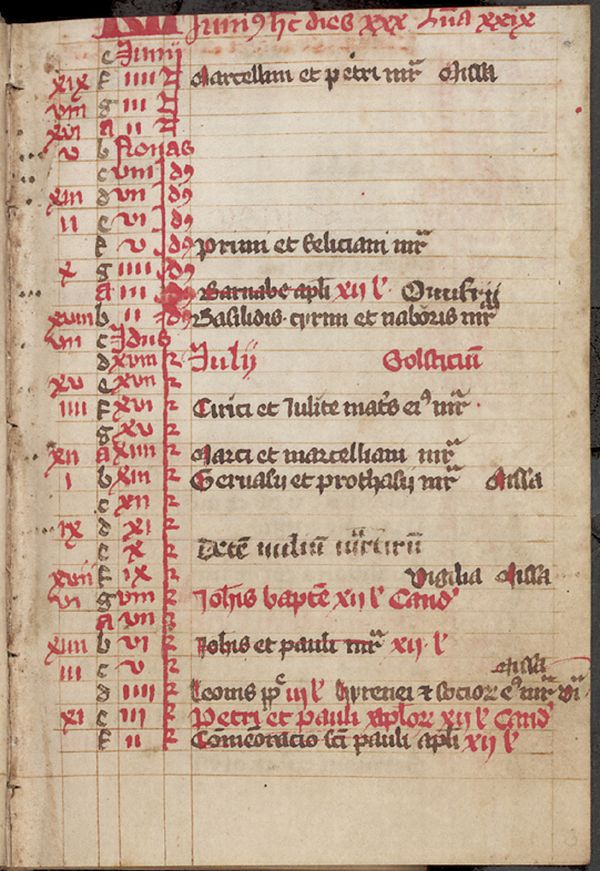 KL Juni9 hc dies xxx Luna xxix
e Junij
xix f iiii N Marcellini et petri mr Missa
viii g iii N
xvi a ii N
v b Nonas
c viii Id9
xiii d vii Id9
ii e vi Id9
f v Id9 Primi et feliciani mr
x g iiii Id9
a iii Id9 Barnabe apli xii l Onufrij
xviii b ii Id9 Basilidis cyrini et naboris mr
vii c Idus
d xviii k Julij Solsticiu
xv e xvii k
iiii f xvi k Cirici et Julite mats ei9 mr
g xv k
xii a xiiii k Marci et marcelliani mr
i b xiii k Geruasij et prothasij mr Missa
c xii k
ix d xi k
e x k Dece miliu mrtirum
xvii f ix k Vigilia Missa
vi g viii k Johis bapte xii l Cand
a vii k
xiiii b vi k Johis et pauli mr xii l
iii c v k Missa
d iiii k Leonis pp iii l hyrenei et socior e9 mr
xi e iii k Petri et Pauli aplor xii l Cand
f ii k Comeoracio sci pauli apli xii l